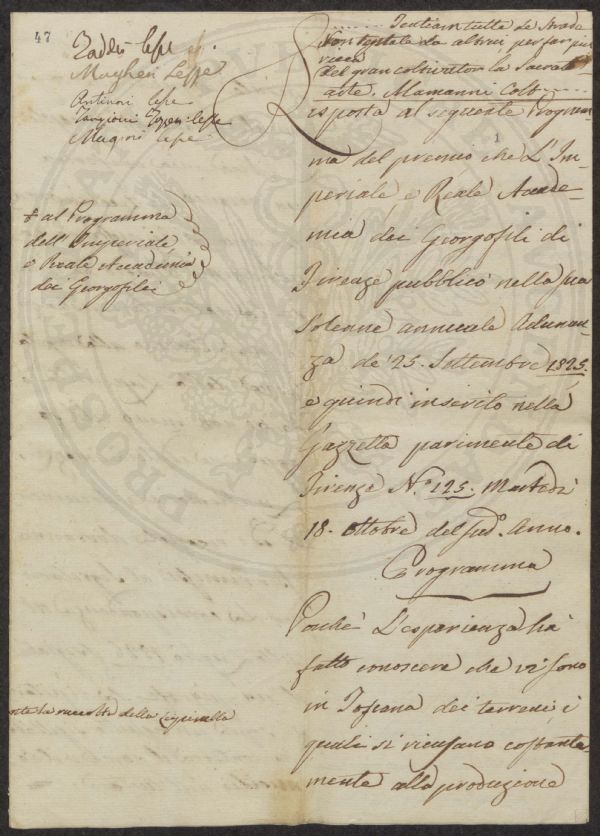 47
Taddei lesse
Magheri lesse
Antinori lesse
Targioni Tozzetti lesse
Mugnai lesse
al Programma
dell'Imperiale
e Reale Accademia
dei Georgofili
la raccolta della
Tentiam tutte le strade
Non
del gran coltivator la
arte. Mamanni Colt.
risposta al seguente Program-
ma del premio che L'Im-
periale e Reale Accade-
mia dei Georgofili di
Firenze pubblicò nella sua
Solenne annuale Adunan-
za de' 25. Settembre 1825.
e quindi inserito nella
Gazzetta parimente di
Firenze N.º 125. Martedì
18. Ottobre del sud.º anno.
Programma
Poichè L'esperienza ha
fatto conoscere che vi sono
in Toscana dei terreni i
quali si ricusano costante
mente alla produzione